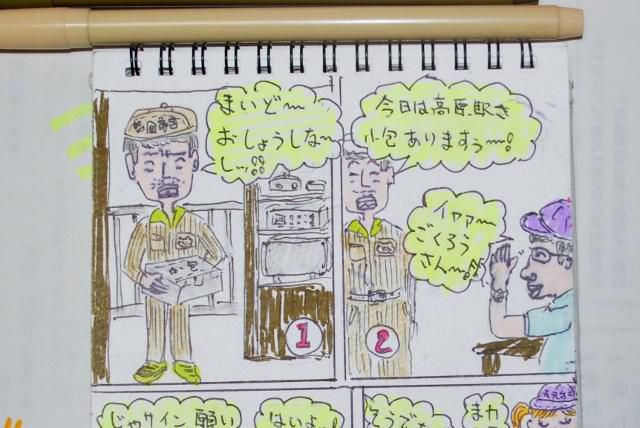 まいど〜
おしょうしな〜
しッ!!
1
今日は高原駅さ
小包ありますぅ〜!
イヤァ〜
ごくろう
さん〜!
2
じゃサイン願い
はいよ
そうで
まカ